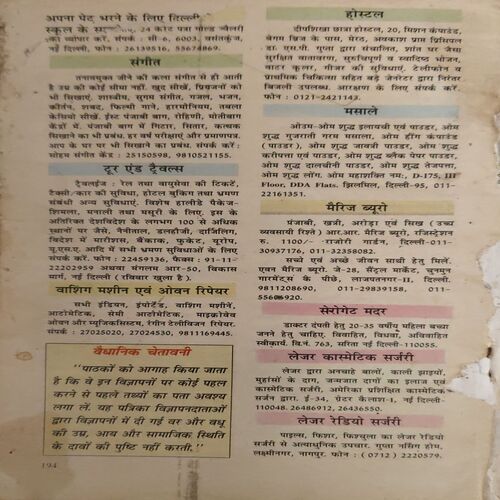 अपना पेट भरने के लिए दिल्ली
स्कूल के 24 कोट पत्रा गोल्ड
का संपर्क : सी-6, 6003, वसंतकुंज,
नई दिल्ली, फोन : 26139516, 55674869.
संगीत
तनावमुक्त जीने की कला संगीत से ही आती
है उम्र की कोई सीमा नहीं. खुद सीखें, प्रियजनों को
भी सिखाएं. शास्त्रीय, सुगम संगीत, गजल, भजन,
कीर्तन, शबद, फिल्मी गाने, हारमोनियम, तबला
केसियो सीखें. ईस्ट पंजाबी बाग, रोहिणी, मोतीबाग
केंद्रों में. पंजाबी बाग में गिटार, सितार, कत्थक
सिखाने का भी प्रबंध. हर वर्ष परीक्षाएं और प्रमाणपत्र.
आप के घर पर भी सिखाने का प्रबंध. संपर्क करें :
सोहम संगीत केंद्र : 25150598, 9810521155.
टूर एंड ट्रैवल्स
ट्रैवलइंज : रेल तथा वायुसेवा की टिकटें,
टैक्सी/कार की सुविधा, होटल बुकिंग तथा भ्रमण
संबंधी अन्य सुविधाएं. विशेष हालीडे पैकेज-
शिमला, मनाली तथा मसूरी के लिए. इस के
अतिरिक्त देशविदेश के लगभग 100 से अधिक
स्थानों पर जैसे, नैनीताल, डलहौजी, दार्जिलिंग,
विदेश में मारीशस, बैंकाक, फुकेट, यूरोप,
यू.एस.ए. आदि में सभी भ्रमण सुविधाओं के लिए
संपर्क करें. फोन : 22459136, फैक्स : 91-11-
22202959 अथवा संगलम आर-50, विकास
मार्ग, नई दिल्ली (रविवार खुला है).
वाशिंग मशीन एवं ओवन रिपेयर
सभी इंडियन, इंपोर्टेड, वाशिंग मशीनें,
आटोमेटिक, सेमी आटोमेटिक, माइक्रोवेव
ओवन और म्यूजिकसिस्टम, रंगीन टेलीविजन रिपेयर.
संपर्क : 27025020, 27024530, 9811169445.
वैधानिक चेतावनी
"पाठकों को आगाह किया जाता
है कि वे इन विज्ञापनों पर कोई पहल
करने से पहले तथ्यों का पता अवश्य
लगा लें. यह पत्रिका विज्ञापनदाताओं
द्वारा विज्ञापनों में दी गई वर और वधू
की उम्र, आय और सामाजिक स्थिति
के दावों की पुष्टि नहीं करती."
194
होस्टल
दीपशिखा छात्रा होस्टल, 20, मिशन कंपाउंड,
बेगम ब्रिज के पास, मेरठ, अवकाश प्राप्त प्रिंसिपल
डा. एस.पी. गुप्ता द्वारा संचालित, शांत घर जैसा
सुरक्षित वातावरण, सुरुचिपूर्ण व स्वादिष्ट भोजन,
वाटर कूलर, गीजर की सुविधाएं, टेलीफोन व
प्राथमिक चिकित्सा सहित बड़े जेनरेटर द्वारा निरंतर
बिजली उपलब्ध. आरक्षण के लिए संपर्क करें.
फोन : 0121-2421143.
मसाले
ओउम-ओम शुद्ध इलायची एवं पाउडर, ओम
शुद्ध गुजराती गरम मसाला, ओम हींग कंपाउंडेड
(पाउडर), ओम शुद्ध जावत्री पाउडर, ओम शुद्ध
करीपत्ता एवं पाउडर, ओम शुद्ध ब्लैक पेपर पाउडर,
ओम शुद्ध दालचीनी पाउडर, ओम शुद्ध तेजपत्ता,
ओम शुद्ध लौंग. ओम महाशक्ति नमः, D-175, III
Floor, DDA Flats, झिलमिल, दिल्ली-95, 011-
22161351.
मैरिज ब्यूरो
पंजाबी, खत्री, अरोड़ा एवं सिख (उच्च
व्यवसायी रिश्ते) आर.आर. मैरिज ब्यूरो, रजिस्ट्रेशन
रु. 1100/- राजौरी गार्डन, दिल्ली-011-
30937176, 011-32358082.
सच्चे एवं अच्छे जीवन साथी हेतु मिलें.
एवन मैरिज ब्यूरो, जे-28, सेंट्रल मार्केट, चुनमुन
गारमेंट्स के पीछे, लाजपतनगर-II, दिल्ली.
9811208690, 011-29838158, 011-
55606920.
सेरोगेट मदर
डाक्टर दंपती हेतु 20-35 वर्षीय महिला बच्चा
जनने हेतु चाहिए. विवाहित, विधवा, अविवाहित
स्वीकार्य. वि.नं. 763, सरिता नई दिल्ली-110055.
लेजर कास्मेटिक सर्जरी
लेजर द्वारा अनचाहे बालों, काली झाइयों,
मुहांसों के दाग, जन्मजात दागों का इलाज एवं
कास्मेटिक सर्जरी, अमेरिका प्रशिक्षित कास्मेटिक
सर्जन द्वारा. ई-34, ग्रेटर कैलाश-I, नई दिल्ली-
110048. 26486912, 26436550.
लेजर रेडियो सर्जरी
पाइल्स, फिशर, फिश्चुला का लेजर रेडियो
सर्जरी से अत्याधुनिक उपचार. गुप्ता नर्सिंग होम,
लक्ष्मीनगर, नागपुर. फोन : (0712) 2220579.